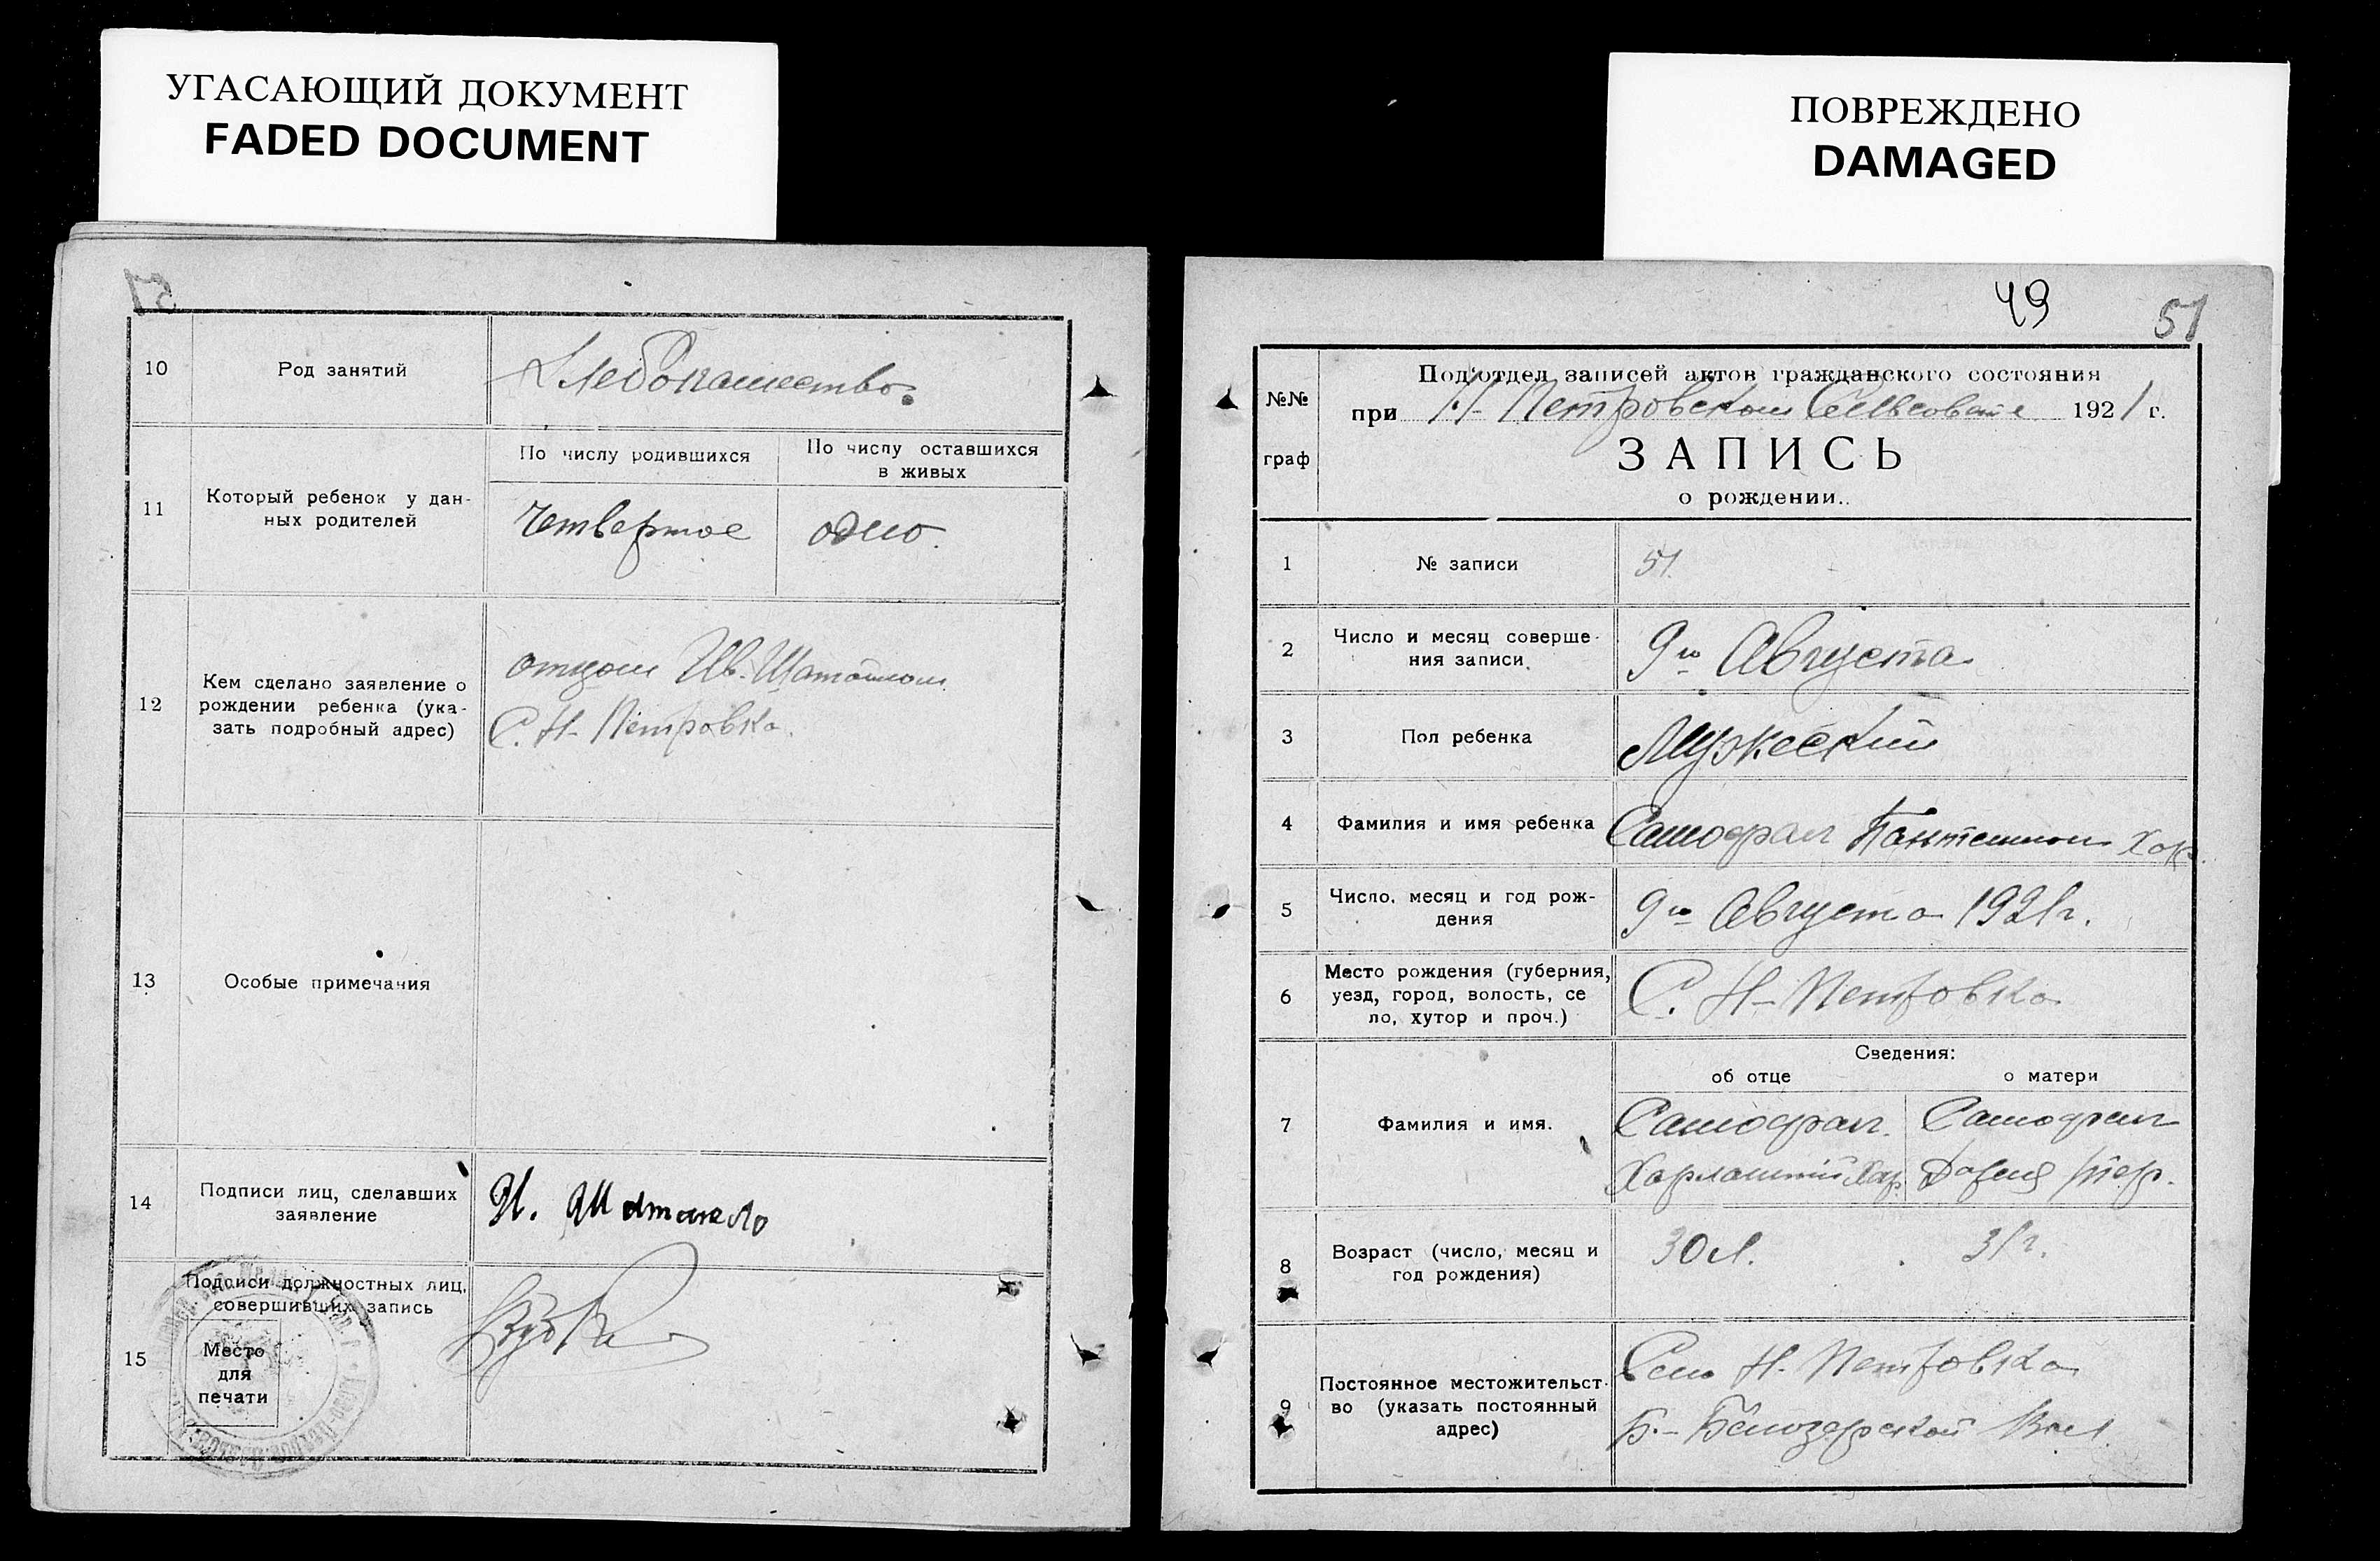 УГАСАЮЩИЙ ДОКУМЕНТ
FADED DOCUMENT
51
10
Род занятий
Хлебопашество.
11
Который ребенок у дан-
ных родителей
По числу родившихся
четвертое
По числу оставшихся
в живых
одно.
12
Кем сделано заявление о
рождении ребенка (ука-
зать подробный адрес)
отцом Ив.
С. Н-Петровка.
13
Особые примечания
14
Подписи лиц, сделавших
заявление
И.
15
Подписи должностных лиц,
совершивших запись
Место
для
печати
ПОВРЕЖДЕНО
DAMAGED
49
51
№№
граф
Подотдел записей актов гражданского состояния
при Н-Петровском Сельсовете 1921 г.
ЗАПИСЬ
о рождении.
1
№ записи
51.
2
Число и месяц соверше-
ния записи.
9го Августа
3
Пол ребенка
Мужеский
4
Фамилия и имя ребенка
Хар.
5
Число, месяц и год рож-
дения
9го Августа 1921г.
6
Место рождения (губерния,
уезд, город, волость, се
ло, хутор и проч.)
С. Н-Петровка
Сведения:
об отце
о матери
7
Фамилия и имя.
Дария
8
Возраст (число, месяц и
год рождения)
30 л.
31 г.
9
Постоянное местожительст-
во (указать постоянный
адрес)
Село Н. Петровка
Б.-Белозерской Вол.